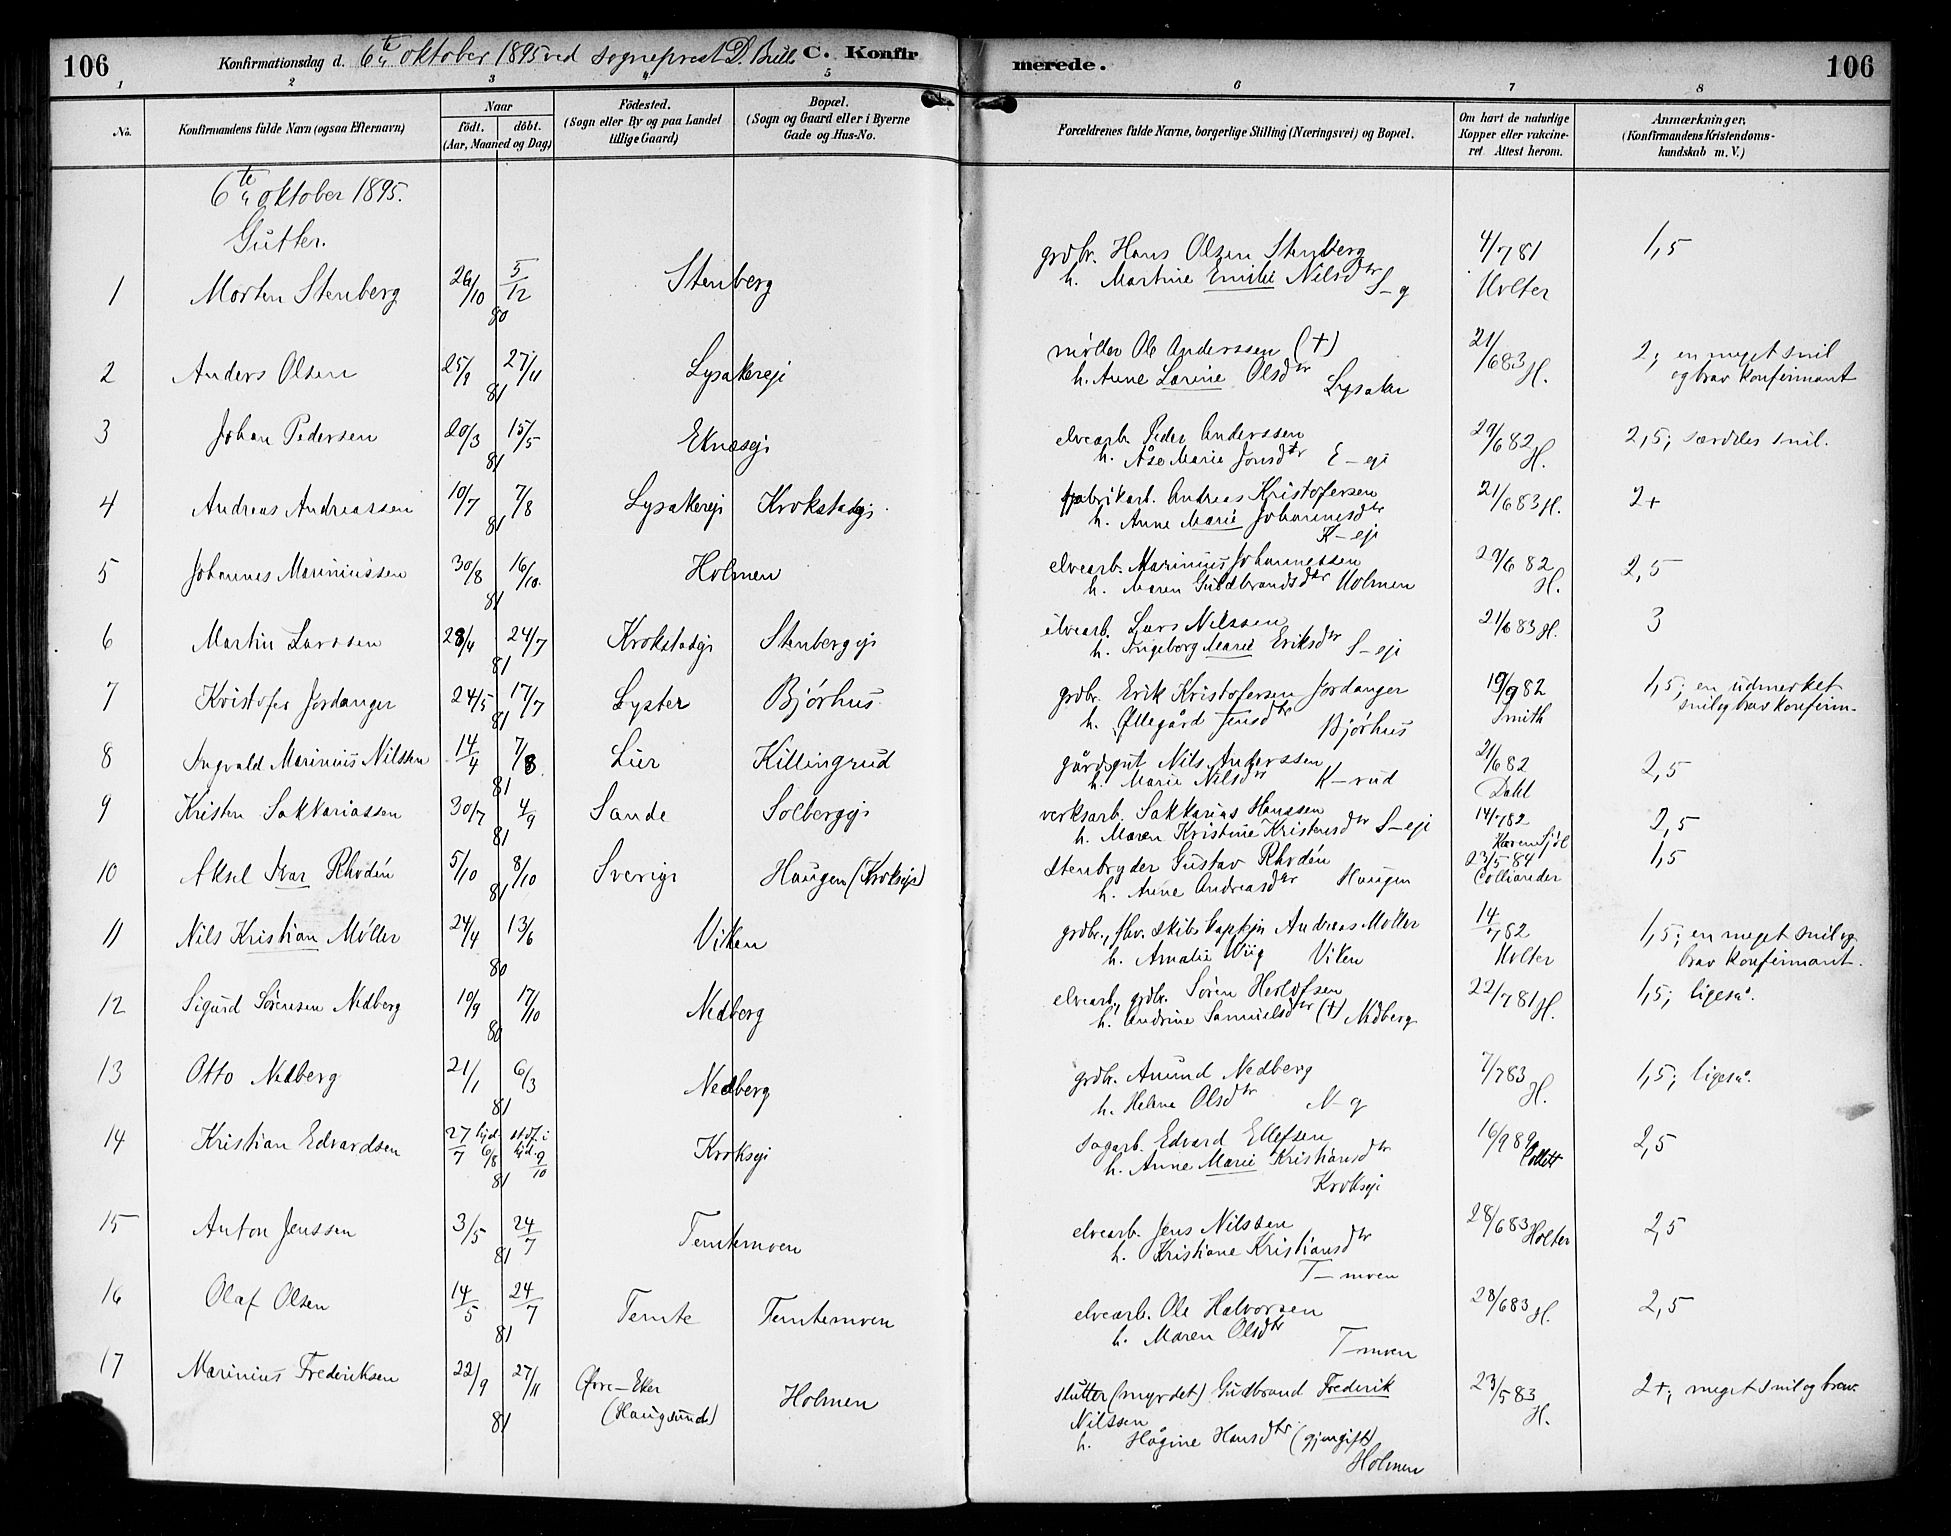 106
Konfirmationsdag d. 6te oktober 1895 ved sogneprest D. Bull C. Konfir
merede.
106
1 2 3 4 5 6 7 8
No.
Konfirmandens fulde Navn (ogsaa Efternavn)
Naar
födt. döbt.
(Aar, Maaned og Dag)
Födested.
(Sogn eller By og paa Landet
tillige Gaard)
Bopæl.
(Sogn og Gaard eller i Byerne
Gade og Hus-No.
Forældrenes fulde Navne, borgerlige Stilling (Næringsvei) og Bopæl.
Om havt de naturlige
Kopper eller vakcine-
ret Attest herom.
Anmærkninger,
(Konfirmandens Kristendoms-
kundskab m. V.)
6te oktober 1895.
Gutter.
1 Morten Stenberg 26/10 5/12 80 Stenberg grdbr. Hans Olsen Stenberg 4/7 81 1,5
h. Martine Emilie Nilsdtr S-g Holter
2 Anders Olsen 25/9 27/11 81 Lysakereji møller Ole Anderssen (+) 21/6 83 H. 2; en meget snil
h. Anne Lovine Olsdtr Lysaker og brav konfirmant
3 Johan Pedersen 20/3 15/5 81 Eknæseji elvearb. Peder Anderssen 29/6 82 H. 2,5; særdeles snil.
h. Åse Marie Jonsdtr E-eji
4 Andreas Andreassen 10/7 7/8 81 Lysakereji Krokstadeji fabrikarb. Andreas Kristofersen 21/6 83 H. 2+
h. Anne Marie Johannesdtr
K-eji
5 Johannes Mariniussen 30/8 16/10 81 Holmen elvearb. Marinius Johannessen 29/6 82 2,5
h. Maren Guldbrandsdtr Holmen H.
6 Martin Larssen 28/4 24/7 81 Krokstadeji Stenbergeji elvearb. Lars Nilssen 21/6 83 H. 3
h. Ingeborg Marie Eriksdtr S-eji
7 Kristofer Jordanger 24/5 17/7 81 Lyster Bjørhus grdbr. Erik Kristofersen Jordanger 19/9 82 1,5; en udmerket
h. Øllegård Jensdtr Bjørhus Smith snil og brav konfirm.
8 Ingvald Marinius Nilsen 14/4 7/8 81 Lier Killingrud gårdsgut Nils Anderssen 21/6 82 2,5
h. Marie Nilsdtr K-rud Dahl
9 Kristen Sakkariassen 30/7 4/9 81 Sande Solbergeji verksarb. Sakkarias Hanssen 14/7 82 2,5
h. Maren Kristine Kristensdtr S-eji
10 Aksel Ivar Rhodén 5/10 8/10 81 Sverige Haugen (Krokseji) Stenbryder Gustav Rhodén 23/5 84 1,5
h. Anne Andreasdtr Haugen Colliander
11 Nils Kristian Møller 24/4 13/6 80 Viken grdbr., fhv. skibskaptejn Andreas Møller 14/7 82 1,5; en meget snil og
h. Amalie Wiig Viken Holter brav konfirmant.
12 Sigurd Sørensen Nedberg 10/9 17/10 80 Nedberg elvearb., grdbr. Søren Herlofsen 22/7 81 H. 1,5; ligeså.
h. Andrine Samuelsdtr (+) Nedberg
13 Otto Nedberg 21/1 6/3 81 Nedberg grdbr. Amund Nedberg 7/7 83 H. 1,5; ligeså.
h. Helene Olsdtr N-g
14 Kristian Edvardsen 27/7 hjd. 6/8 stdf. i kid. 9/10 81 Krokseji Sagarb. Edvard Ellefsen 16/9 89 Collett 2,5
h. Anne Marie Kristiansdtr
Krokseji
15 Anton Jenssen 3/5 24/7 81 Temtemoen elvearb. Jens Nilssen 28/6 83 Holter 2,5
h. Kristiane Kristiansdtr
T-moen
16 Olaf Olsen 14/5 24/7 81 Temte Temtemoen elvearb. Ole Halvorsen 28/6 83 H. 2,5
h. Maren Olsdtr
T-moen
17 Marinius Frederiksen 22/9 27/11 81 Øvre-Eker Holmen slutter (myrdet) Gudbrand Frederik 23/5 83 H. 2+; meget snil og brav.
(Haugsund) Nilssen
h. Hågine Hansdtr (gjengift)
Holmen